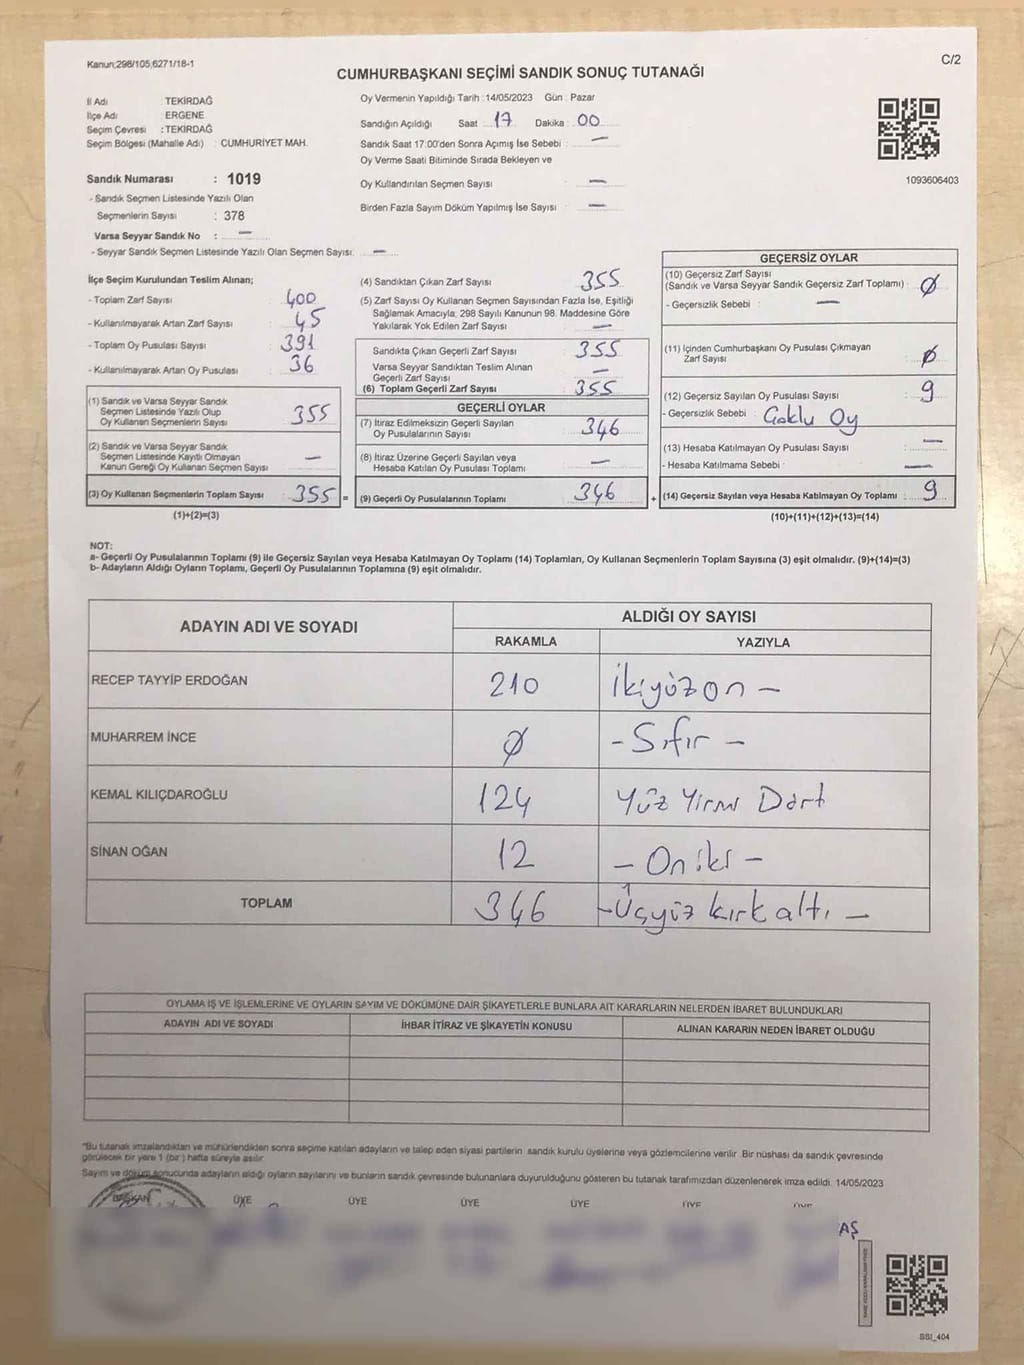 Kanun;298/105;6271/18-1
C/2
CUMHURBAŞKANI SEÇİMİ SANDIK SONUÇ TUTANAĞI
İl Adı TEKİRDAĞ
İlçe Adı ERGENE
Seçim Çevresi : TEKİRDAĞ
Seçim Bölgesi (Mahalle Adı) : CUMHURİYET MAH.
Sandık Numarası : 1019
- Sandık Seçmen Listesinde Yazılı Olan
Seçmenlerin Sayısı : 378
Varsa Seyyar Sandık No : —
- Seyyar Sandık Seçmen Listesinde Yazılı Olan Seçmen Sayısı: —
Oy Vermenin Yapıldığı Tarih : 14/05/2023 Gün : Pazar
Sandığın Açıldığı Saat : 17 Dakika : 00
Sandık Saat 17:00'den Sonra Açımış İse Sebebi : —
Oy Verme Saati Bitiminde Sırada Bekleyen ve
Oy Kullandırılan Seçmen Sayısı : —
Birden Fazla Sayım Döküm Yapılmış İse Sayısı : —
1093606403
İlçe Seçim Kurulundan Teslim Alınan;
- Toplam Zarf Sayısı : 400
- Kullanılmayarak Artan Zarf Sayısı : 45
- Toplam Oy Pusulası Sayısı : 391
- Kullanılmayarak Artan Oy Pusulası : 36
(1) Sandık ve Varsa Seyyar Sandık
Seçmen Listesinde Yazılı Olup
Oy Kullanan Seçmenlerin Sayısı : 355
(2) Sandık ve Varsa Seyyar Sandık
Seçmen Listesinde Kayıtlı Olmayan
Kanun Gereği Oy Kullanan Seçmen Sayısı : —
(3) Oy Kullanan Seçmenlerin Toplam Sayısı : 355 =
(1)+(2)=(3)
(4) Sandıktan Çıkan Zarf Sayısı : 355
(5) Zarf Sayısı Oy Kullanan Seçmen Sayısından Fazla İse, Eşitliği
Sağlamak Amacıyla; 298 Sayılı Kanunun 98. Maddesine Göre
Yakılarak Yok Edilen Zarf Sayısı : —
Sandıkta Çıkan Geçerli Zarf Sayısı : 355
Varsa Seyyar Sandıktan Teslim Alınan
Geçerli Zarf Sayısı : —
(6) Toplam Geçerli Zarf Sayısı : 355
GEÇERLİ OYLAR
(7) İtiraz Edilmeksizin Geçerli Sayılan
Oy Pusulalarının Sayısı : 346
(8) İtiraz Üzerine Geçerli Sayılan veya
Hesaba Katılan Oy Pusulası Toplamı : —
(9) Geçerli Oy Pusulalarının Toplamı : 346 +
GEÇERSİZ OYLAR
(10) Geçersiz Zarf Sayısı
(Sandık ve Varsa Seyyar Sandık Geçersiz Zarf Toplamı) : Ø
- Geçersizlik Sebebi : —
(11) İçinden Cumhurbaşkanı Oy Pusulası Çıkmayan
Zarf Sayısı : Ø
(12) Geçersiz Sayılan Oy Pusulası Sayısı : 9
- Geçersizlik Sebebi : Çoklu Oy
(13) Hesaba Katılmayan Oy Pusulası Sayısı : —
- Hesaba Katılmama Sebebi : —
(14) Geçersiz Sayılan veya Hesaba Katılmayan Oy Toplamı : 9
(10)+(11)+(12)+(13)=(14)
NOT:
a- Geçerli Oy Pusulalarının Toplamı (9) ile Geçersiz Sayılan veya Hesaba Katılmayan Oy Toplamı (14) Toplamları, Oy Kullanan Seçmenlerin Toplam Sayısına (3) eşit olmalıdır. (9)+(14)=(3)
b- Adayların Aldığı Oyların Toplamı, Geçerli Oy Pusulalarının Toplamına (9) eşit olmalıdır.
ADAYIN ADI VE SOYADI ALDIĞI OY SAYISI
RAKAMLA YAZIYLA
RECEP TAYYİP ERDOĞAN 210 İkiyüzon —
MUHARREM İNCE Ø - Sıfır —
KEMAL KILIÇDAROĞLU 124 Yüz Yirmi Dört
SİNAN OĞAN 12 — On iki —
TOPLAM 346 - Üçyüz kırk altı —
OYLAMA İŞ VE İŞLEMLERİNE VE OYLARIN SAYIM VE DÖKÜMÜNE DAİR ŞİKAYETLERLE BUNLARA AİT KARARLARIN NELERDEN İBARET BULUNDUKLARI
ADAYIN ADI VE SOYADI İHBAR İTİRAZ VE ŞİKAYETİN KONUSU ALINAN KARARIN NEDEN İBARET OLDUĞU
"Bu tutanak imzalandıktan ve mühürlendikten sonra seçime katılan adayların ve talep eden siyasi partilerin sandık kurulu üyelerine veya gözlemcilerine verilir. Bir nüshası da sandık çevresinde
görülecek bir yere 1 (bir) hafta süreyle asılır.
Sayım ve döküm sonucunda adayların aldığı oyların sayılarını ve bunların sandık çevresinde bulunanlara duyurulduğunu gösteren bu tutanak tarafımızdan düzenlenerek imza edildi. 14/05/2023
BAŞKAN ÜYE ÜYE ÜYE ÜYE ÜYE ÜYE
AŞ
SSI_404